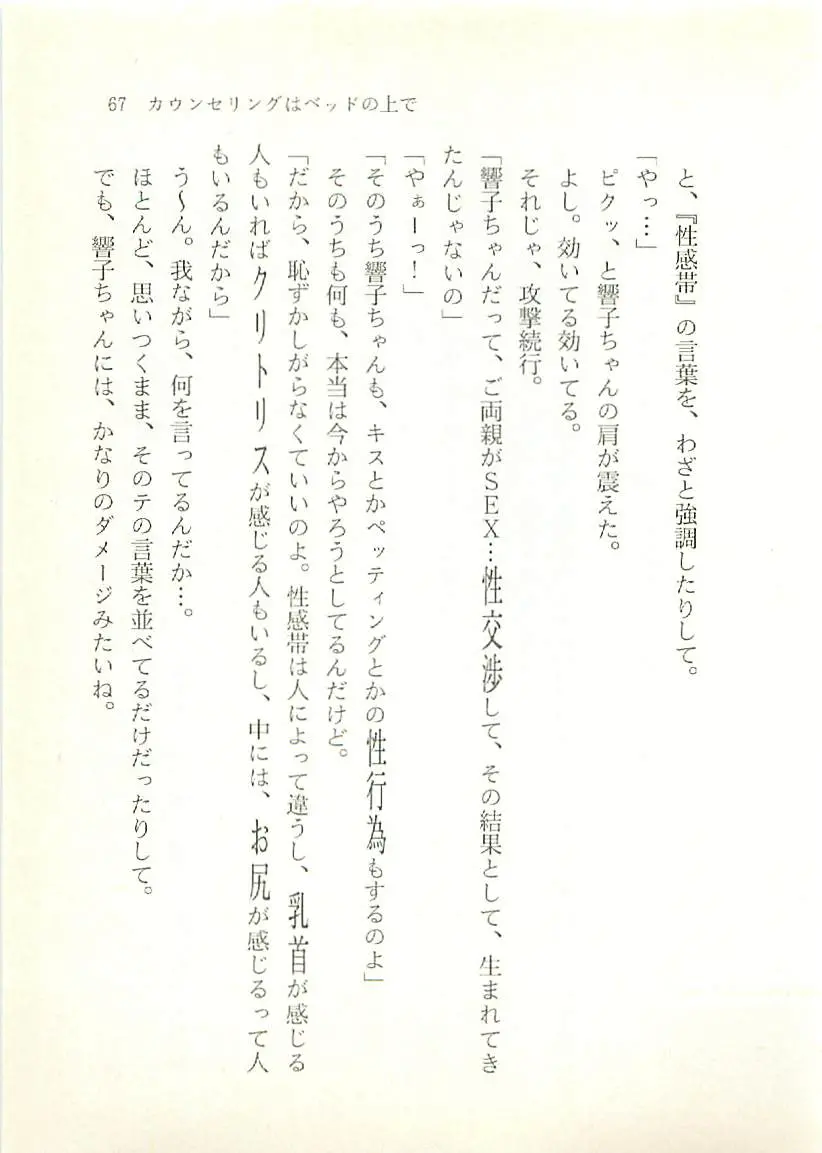 67 カウンセリングはベッドの上で
と、『性感帯』の言葉を、わざと強調したりして。
「やっ…」
ピクッ、と響子ちゃんの肩が震えた。
よし。効いてる効いてる。
それじゃ、攻撃続行。
「響子ちゃんだって、ご両親がSEX…性交渉して、その結果として、生まれてき
たんじゃないの」
「やぁーっ！」
「そのうち響子ちゃんも、キスとかペッティングとかの性行為もするのよ」
そのうちも何も、本当は今からやろうとしてるんだけど。
「だから、恥ずかしがらなくていいのよ。性感帯は人によって違うし、乳首が感じる
人もいればクリトリスが感じる人もいるし、中には、お尻が感じるって人
もいるんだから」
う～ん。我ながら、何を言ってるんだか…。
ほとんど、思いつくまま、そのテの言葉を並べてるだけだったりして。
でも、響子ちゃんには、かなりのダメージみたいね。